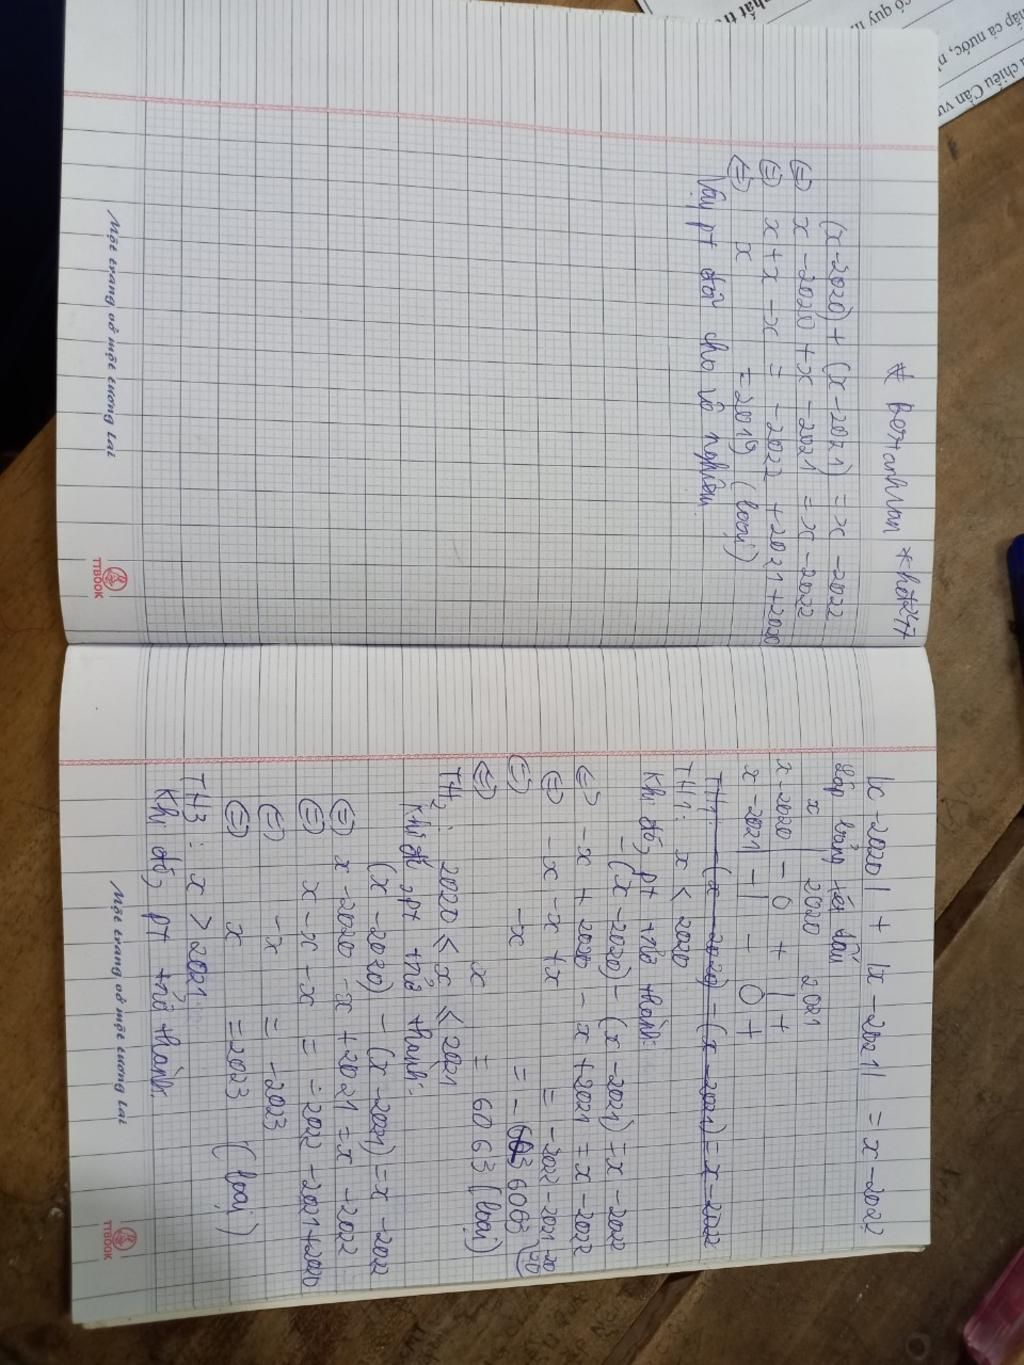 |x - 2020| + |x - 2021| = x - 2022
Lập bảng xét dấu
x 2020 2021
x - 2020 | - 0 + | +
x - 2021 | - | - 0 +
TH1: - (x - 2020) - (x - 2021) = x - 2022
TH1: x < 2020
Khi đó, pt trở thành:
- (x - 2020) - (x - 2021) = x - 2022
⇔ - x + 2020 - x + 2021 = x - 2022
⇔ - x - x + x = - 2022 - 2021 - 2020
⇔ - x = - 6063
⇔ x = 6063 (loại)
TH2: 2020 ≤ x ≤ 2021
Khi đó, pt trở thành:
(x - 2020) - (x - 2021) = x - 2022
⇔ x - 2020 - x + 2021 = x - 2022
⇔ x - x - x = - 2022 - 2021 + 2020
⇔ - x = - 2023
⇔ x = 2023 (loại)
TH3: x > 2021
Khi đó, pt trở thành:
Một trang vở một tương lai
TTBOOK
* hot247
(x - 2020) + (x - 2021) = x - 2022
⇔ x - 2020 + x - 2021 = x - 2022
⇔ x + x - x = - 2022 + 2021 + 2020
⇔ x = 2019 (loại)
Vậy pt đã cho vô nghiệm
Một trang vở một tương lai
TTBOOK
quy
cả nước,
chiếu Cần